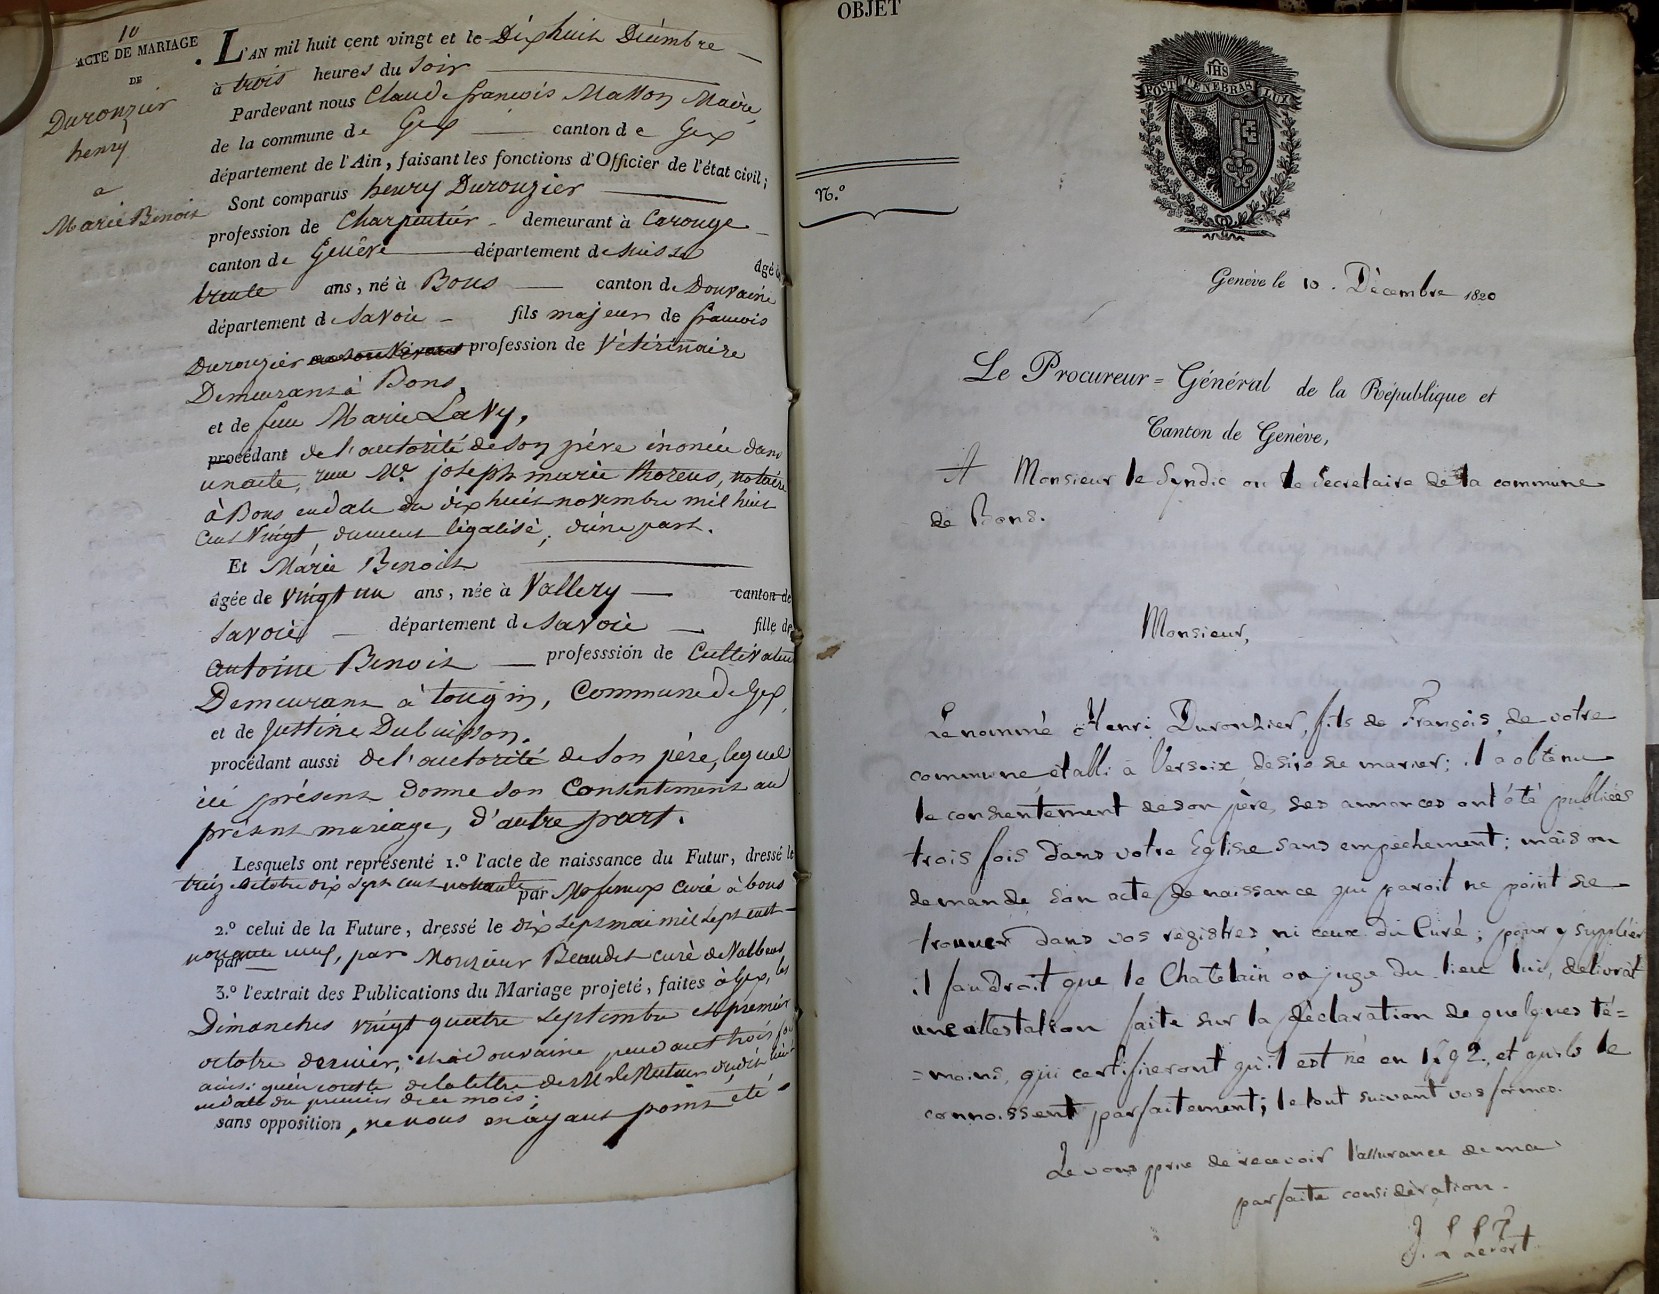 10
ACTE DE MARIAGE
DE
Duronzier
henry
a
Marie Benoit
L'AN mil huit cent vingt et le Dixhuit Décembre
à trois heures du soir
Pardevant nous Claude françois Masson Maire,
de la commune de Gex canton de Gex
département de l'Ain, faisant les fonctions d'Officier de l'état civil;
Sont comparus henry Duronzier
profession de Charpentier demeurant à Carouge
canton de Genève département de suisse âgé de
trente ans, né à Bons canton de Douvaine
département de Savoie fils majeur de françois
Duronzier profession de Vétérinaire
Demeurant à Bons,
et de feue Marie Lavy,
procédant de l'autorité de son père énoncée dans
un acte, reçu Me. joseph marie thoreus, notaire
à Bons en date du dix huit novembre mil huit
cent Vingt, dument légalisé, d'une part.
Et Marie Benoit
âgée de vingt un ans, née à Vallery canton de
Savoie département de Savoie fille de
antoine Benoit professsion de Cultivateur
Demeurant à tougin, Commune de Gex,
et de Justine Dubuisson.
procédant aussi de l'autorité de son père, lequel
ici présent donne son Consentement au
présent mariage, d'autre part.
Lesquels ont représenté 1.º l'acte de naissance du Futur, dressé le
treize octobre dix sept cent nonante par curé à bons
2.º celui de la Future, dressé le dix sept mai mil sept cent
nonante neuf, par Monsieur Beaudet curé de
3.º l'extrait des Publications du Mariage projeté, faites à Gex, les
Dimanches vingt quatre septembre et premier
octobre dernier, et à Douvaine pendant trois fois
ainsi qu'en conste de la lettre de
en date du premier de ce mois;
sans opposition, ne nous en ayant point été
OBJET
N.º
JHS
POST TENEBRAS LUX
Genève le 10. Décembre 1820
Le Procureur=Général de la République et
Canton de Genève,
A Monsieur le Syndic ou le Secretaire de la commune
de Bons.
Monsieur,
Le nommé Henri Duronzier, fils de François, de votre
commune établi à Versoix désire se marier; il a obtenu
le consentement de son père, ses annonces ont été publiées
trois fois dans votre Eglise sans empêchement; mais on
demande son acte de naissance qui paroit ne point se
trouver dans vos régistres ni ceux du Curé; pour y suppléer
il faudroit que le Chatelain ou juge du lieu lui, delivrât
une attestation faite sur la déclaration de quelques té=
=moins, qui certifieront qu'il est né en 1792, et qu'ils le
connoissent parfaitement; le tout suivant vos formes.
Je vous prie de recevoir l'assurance de ma
parfaite considération.